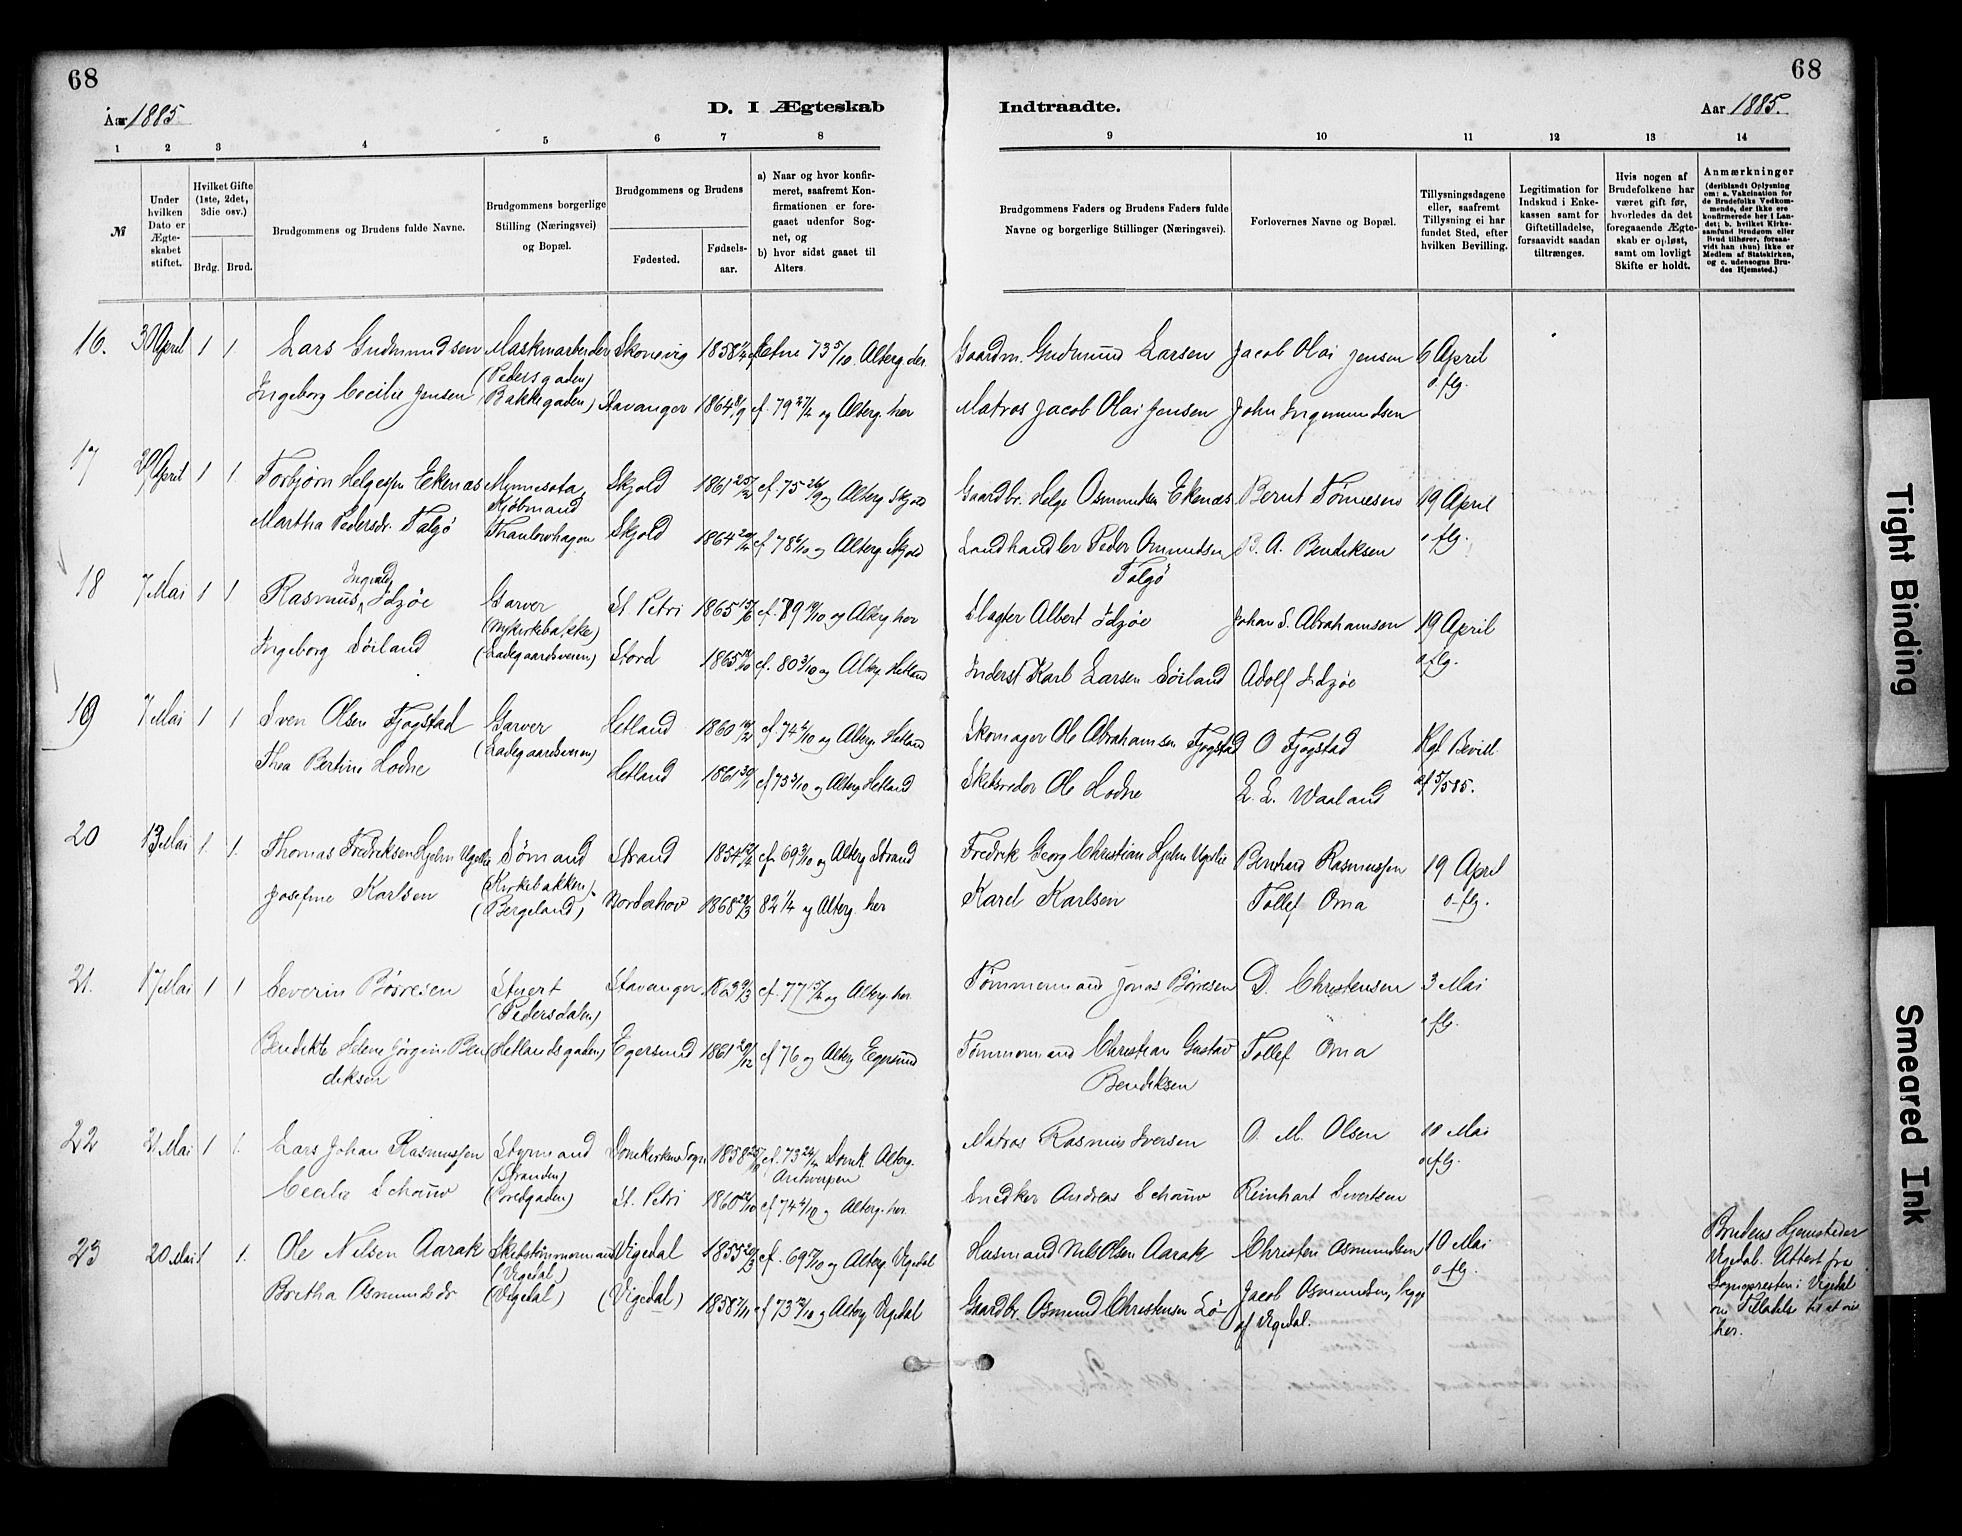 68
68
Aar 1885
D. I Ægteskab
Indtraadte.
Aar 1885.
1 2 3 4 5 6 7 8 9 10 11 12 13 14
№
Under hvilken Dato er Ægteskabet stiftet.
Hvilket Gifte (1ste, 2det, 3die osv.)
Brdg. Brud.
Brudgommens og Brudens fulde Navne.
Brudgommens borgerlige Stilling (Næringsvei) og Bopæl.
Brudgommens og Brudens
Fødested.
Fødsels-aar.
a) Naar og hvor konfirmeret, saafremt Konfirmationen er foregaaet udenfor Sognet, og
b) hvor sidst gaaet til Alters
Brudgommens Faders og Brudens Faders fulde Navne og borgerlige Stillinger (Næringsvei).
Forlovernes Navne og Bopæl.
Tillysningsdagene eller, saafremt Tillysning ei har fundet Sted, efter hvilken Bevilling.
Legitimation for Indskud i Enkekassen samt for Giftetilladelse, forsaavidt saadan tiltrænges.
Hvis nogen af Brudefolkene har været gift før, hvorledes da det foregaaende Ægteskab er opløst, samt om lovligt Skifte er holdt.
Anmærkninger
(deriblandt Oplysning om: a. Vakcination for de Brudefolks Vedkommende, der ikke ere konfirmerede her i Landet; b. hvilket Kirkesamfund Brudgom eller Brud tilhører, forsaavidt han (hun) ikke er Medlem af Statskirken, og c. udensogns Brudes Hjemsted.)
16. 30 April 1 1. Lars Gudmundsen Maskinarbeider Skonevig 1858 73 5/10. Alterg. der. Gaardm. Gudmund Larsen Jacob Olai Jensen 6 April
(Pedersgaden) o flg.
Ingeborg Cecilie Jensen (Bakkegaden) Stavanger 1864 8/9 cf. 79 27/4 og Alterg. her Matros Jacob Olai Jensen John Ingemundsen
17 29 April 1 1. Torbjørn Helgesen Ekenæs Mynnesota, Skjold 1861 25/2 cf. 75 26/9 og Alterg Skjold Gaardbr. Helge Osmundsen Ekenæs Bernt Tønnesen 19 April
Kjøbmand
Martha Pedersdr. Talgø Thaulowhagen Skjold 1864 cf 78 6/10 og Alterg Skjold Landhandler Peder Omundsen B. A. Bendiksen o flg.
Talgø
18 7 Mai 1 1. Rasmus Ingvald Idzøe Garver St. Petri 1865 15/6 cf. 79 og Alterg her Slagter Albert Idzøe Johan S. Abrahamsen 19 April
(Nykirkebakke) o flg.
Ingeborg Soiland (Ladegaardsveien) Stord 1865 cf. 80 3/10 og Alterg. Hetland Inderst Karl Larsen Soiland Adolf Idzøe
19 7 Mai 1 1 Sven Olsen Fjogstad Garver Hetland 1860 cf 74 4/10 og Alterg. Hetland Skomager Ole Abrahamsen Fjogstad O Fjogstad Kgl Bevill.
(Ladegaardsveien)
Thea Bertine Hodne Hetland 1861 cf 75 3/10 og Alterg Hetland Skibsreder Ole Hodne L. L. Waaland af 5/5 85.
20 13 Mai 1. 1. Thomas Fredriksen Hjelm Ugelie Sømand Strand 1854 cf. 69 3/10 og Alterg Strand Fredrik Georg Christian Hjelm Ugelie Bernhard Rasmussen 19 April
(Kirkebakken)
Josefine Karlsen (Bergeland) Norderhov 1868 28/3 82 1/4 og Alterg. her Karel Karlsen Tollef Oma o flg.
21. 17 Mai 1 1 Severin Börresen Stuert Stavanger cf. 77 15/4 og Alterg. her. Tømmermand Jonas Børresen D. Christensen 3 Mai
(Pedersdalen) o flg.
Bendikte Helene Jørgine Ben (Hetlandsgaden) Egersund 1861 29/12 cf 76 og Alterg Egersund Tømmermand Christian Gustav Tollef Oma
diksen Bendiksen
22 21 Mai 1 1. Lars Johan Rasmussen Styrmand Domkirkens Sogn 1858 cf. 73 24/4 Domk. Alterg. Matros Rasmus Iversen O. M. Olsen 10 Mai
(Stranden) Antwerpen o flg.
Cecilie Schouw St. Petri 1860 cf 74 4/10 og Alterg. her. Snedker Andreas Schouw Reinhart Sivertsen
23 20 Mai 1 1. Ole Nilsen Aarak Skibstømmermand Vigedal 1855 20/3 cf. 69 og Alterg Vigedal Husmand Nils Olsen Aarak Christen Osmundsen 10 Mai
(Vigedal) o flg.
Bertha Osmundsdr (Vigedal) (Vigedal) 1858 7/11 cf 73 12/10 og Alterg Vigedal Gaardbr. Osmund Christensen Lø- Jacob Osmundsen, begge
af Vigedal.
Brudens Hjemsted er
Vigedal. Attest fra
Sognepresten i Vigedal
om Tilladelse til at vies
her.
Tight Binding
Smeared Ink